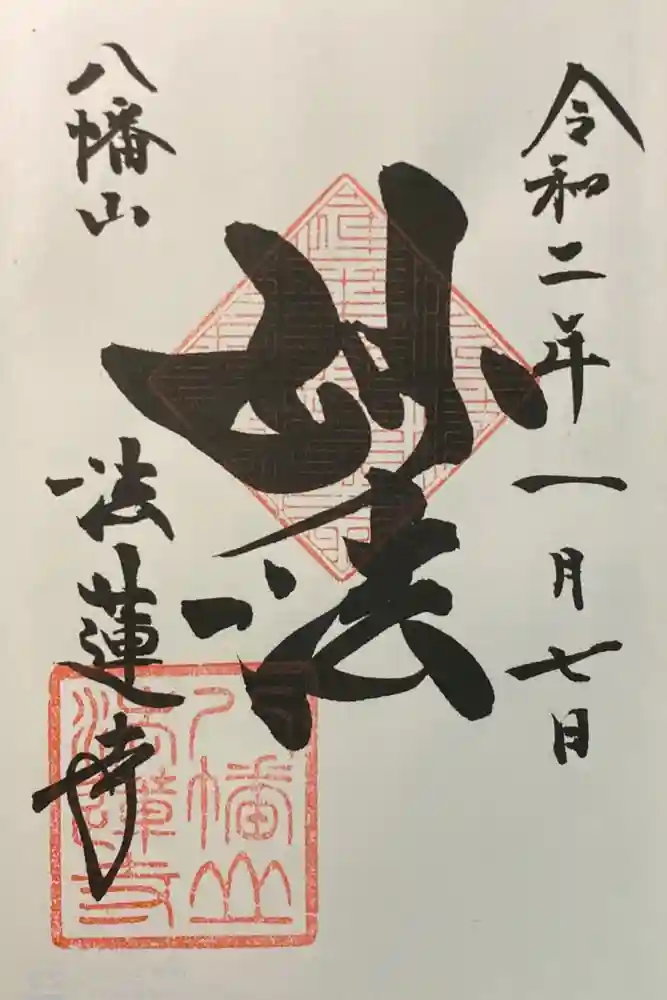 令和二年一月七日
妙法
八幡山
法蓮寺
八幡山
法蓮寺